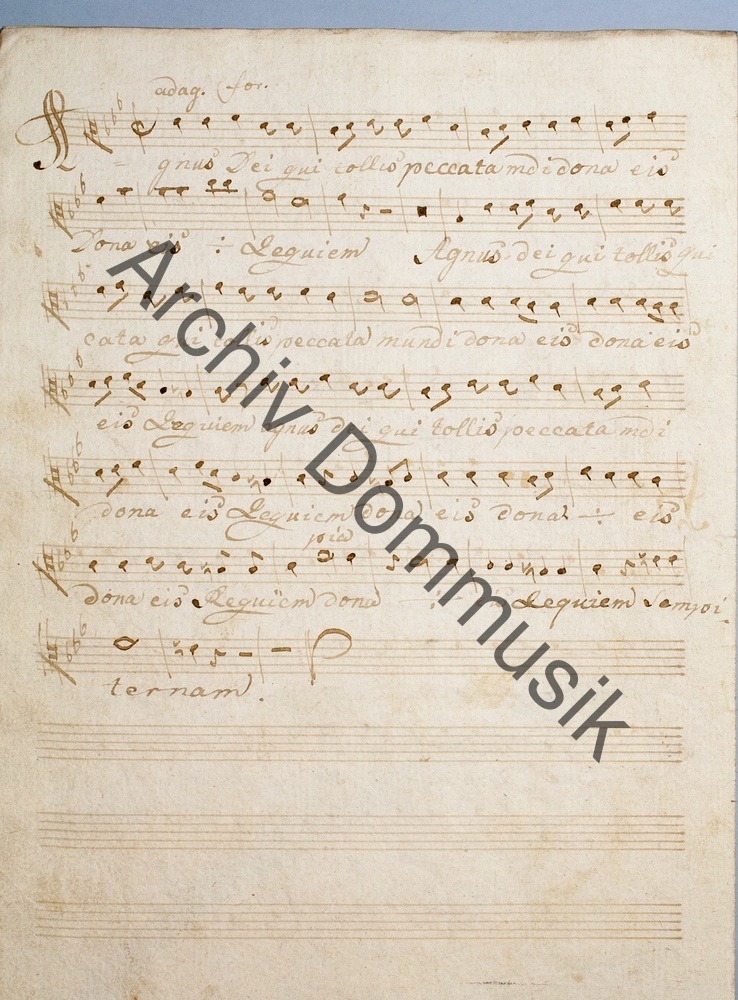 adag. for.
Agnus Dei qui tollis peccata mdi dona eis
Dona eis ÷ Requiem Agnus dei qui tollis qui
cata qui tollis peccata mundi dona eis dona eis
eis Requiem agnus dei qui tollis peccata mdi
dona eis Requiem dona eis dona ÷ eis
pia
dona eis Requiem dona Requiem sempi
ternam.
Archiv Dommusik